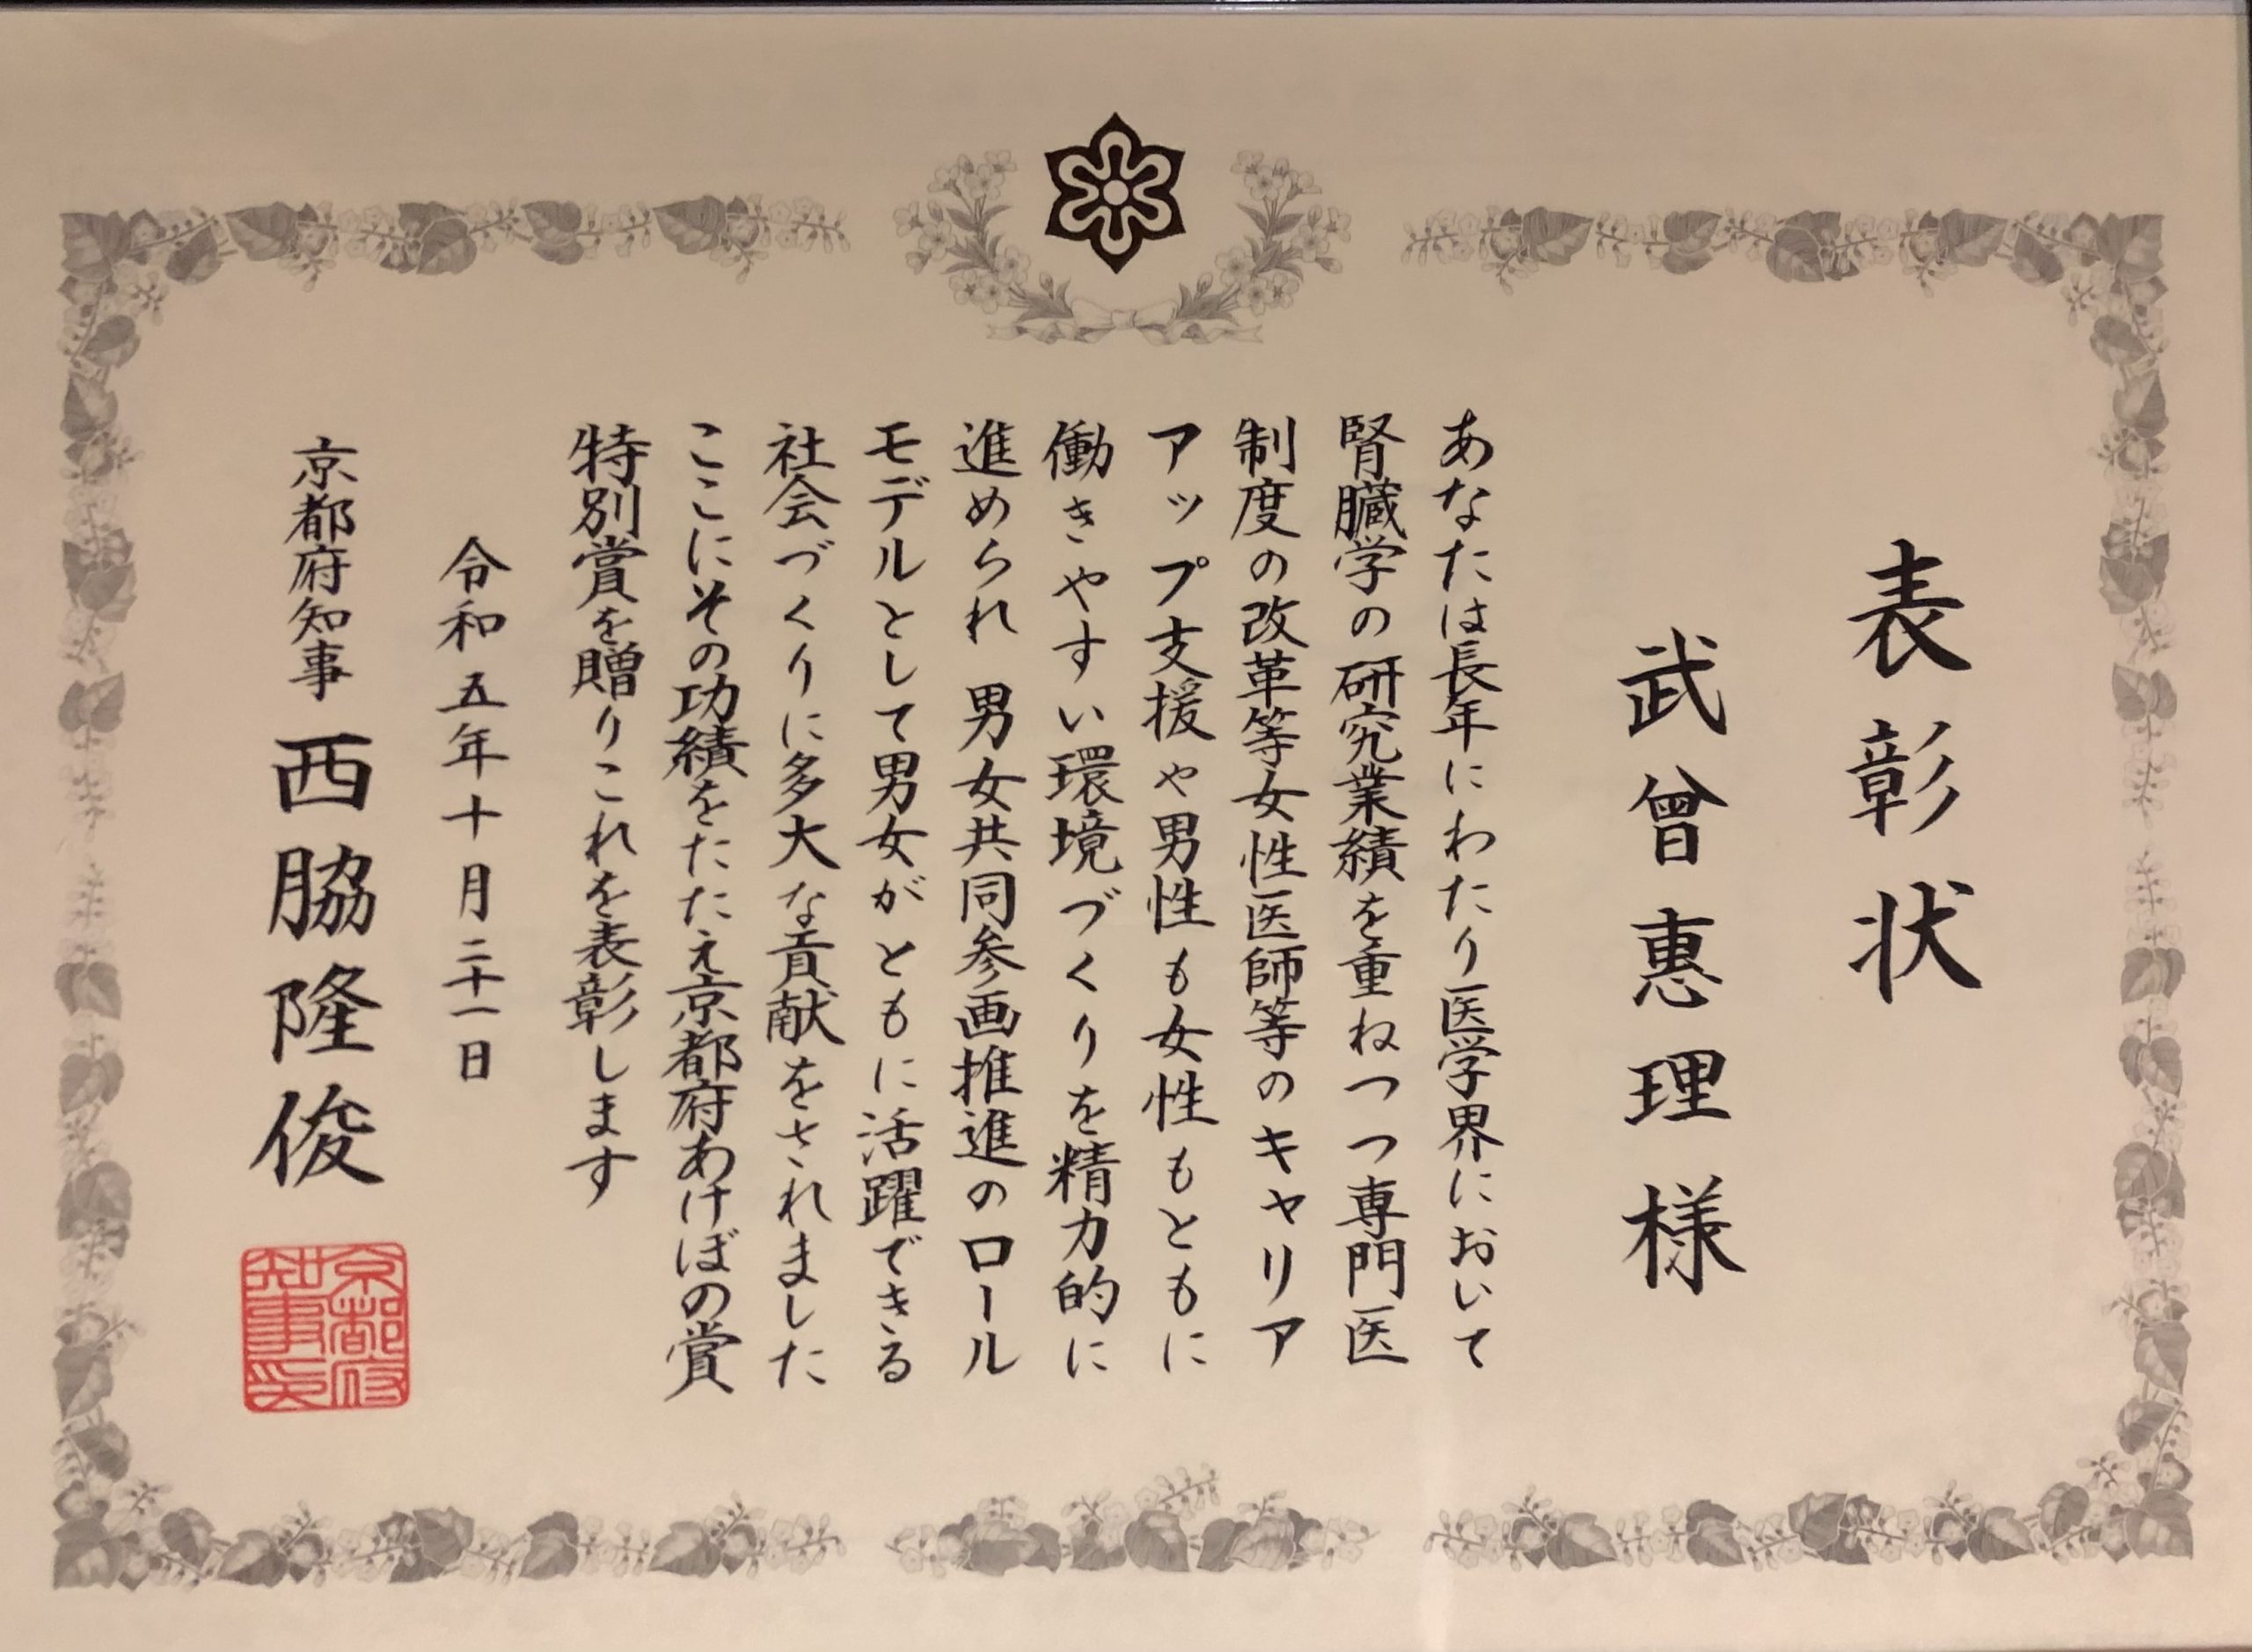 表彰状
武曾惠理様
あなたは長年にわたり医学界において
腎臓学の研究業績を重ねつつ専門医
制度の改革等女性医師等のキャリア
アップ支援や男性も女性もともに
働きやすい環境づくりを精力的に
進められ男女共同参画推進のロール
モデルとして男女がともに活躍できる
社会づくりに多大な貢献をされました
ここにその功績をたたえ京都府あけぼの賞
特別賞を贈りこれを表彰します
令和五年十月二十一日
京都府知事 西脇隆俊
京都府
知事印